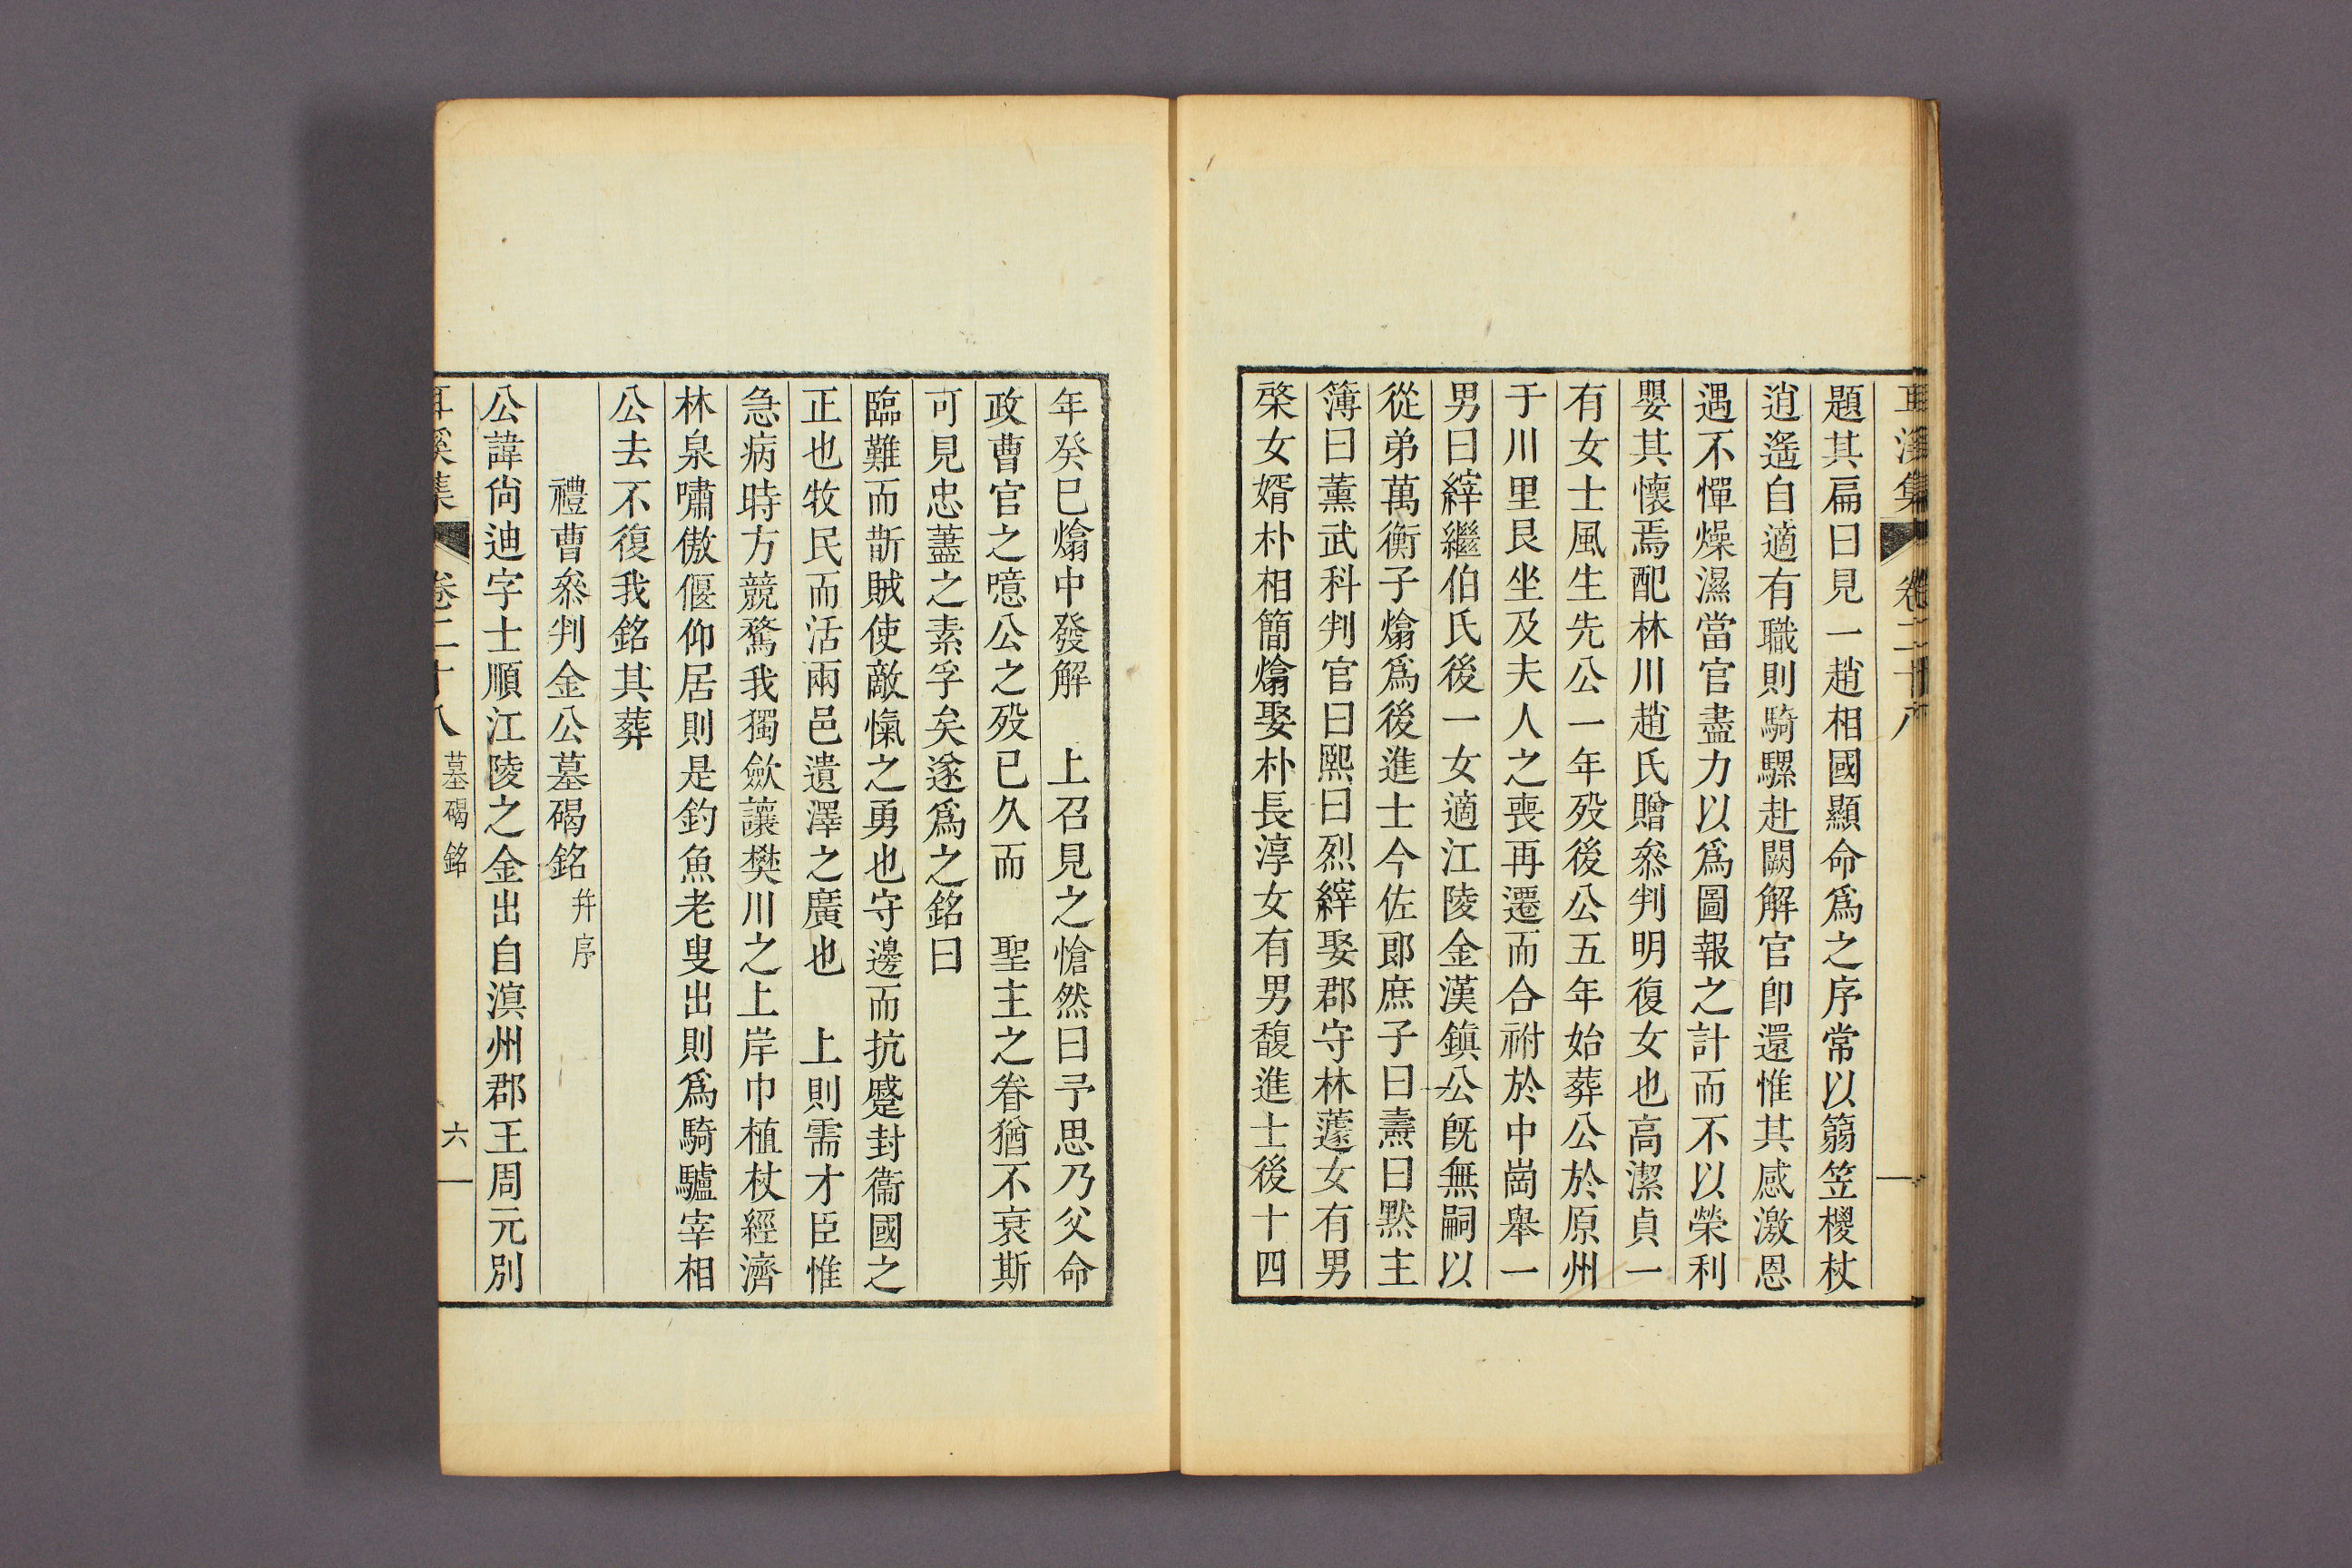 耳溪集 卷二十八
題其扁曰見一趙相國顯命爲之序常以篛笠椶杖
逍遙自適有職則騎騾赴闕解官卽還惟其感激恩
遇不憚燥濕當官盡力以爲圖報之計而不以榮利
嬰其懷焉配林川趙氏贈叅判明復女也高潔貞一
有女士風生先公一年歿後公五年始葬公於原州
于川里艮坐及夫人之喪再遷而合祔於中崗舉一
男曰縡繼伯氏後一女適江陵金漢鎭公旣無嗣以
從弟萬衡子熻爲後進士今佐郞庶子曰燾曰默主
簿曰薰武科判官曰熈曰烈縡娶郡守林蘧女有男
棨女婿朴相簡熻娶朴長淳女有男馥進士後十四
年癸巳熻中發解 上召見之愴然曰予思乃父命
政曹官之噫公之歿已久而 聖主之眷猶不衰斯
可見忠藎之素孚矣遂爲之銘曰
臨難而斮賊使敵愾之勇也守邊而抗蹙封衞國之
正也牧民而活兩邑遺澤之廣也 上則需才臣惟
急病時方競騖我獨斂讓樊川之上岸巾植杖經濟
林泉嘯傲偃仰居則是釣魚老叟出則爲騎驢宰相
公去不復我銘其葬
禮曹叅判金公墓碣銘 幷序
公諱尙迪字士順江陵之金出自溟州郡王周元別
耳溪集 卷二十八 墓碣銘 六